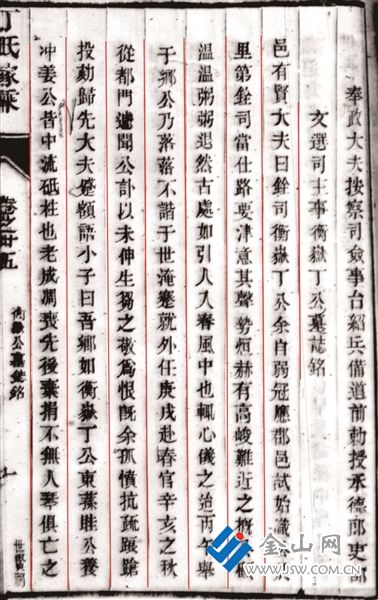 奉政大夫按察司僉事台紹兵備道前勅授承德郎吏部
文選司主事衡嶽丁公墓誌銘
邑有賢大夫曰銓司衡嶽丁公余自弱冠應郡邑試始識
里第銓司當仕路要津意其聲勢恒赫有高峻難近之概
溫溫粥粥退然古處如引人入春風中也輒心儀之迨丙午舉
于鄉公乃落落不諧于世淹蹇就外任庚戌赴春官辛亥之秋
從都門遽聞公訃以未伸生芻之敬爲恨旣余孤憤抗疏踉蹌
投劾歸先大夫蹙額語小子曰吾鄉如衡嶽丁公東蓀眭公養
冲姜公昔中流砥柱也老成凋喪先後棄捐不無人琴俱亡之
丁氏家乘
卷之廿五
衡嶽公墓誌銘
金山网
WWW.JSW.COM.CN